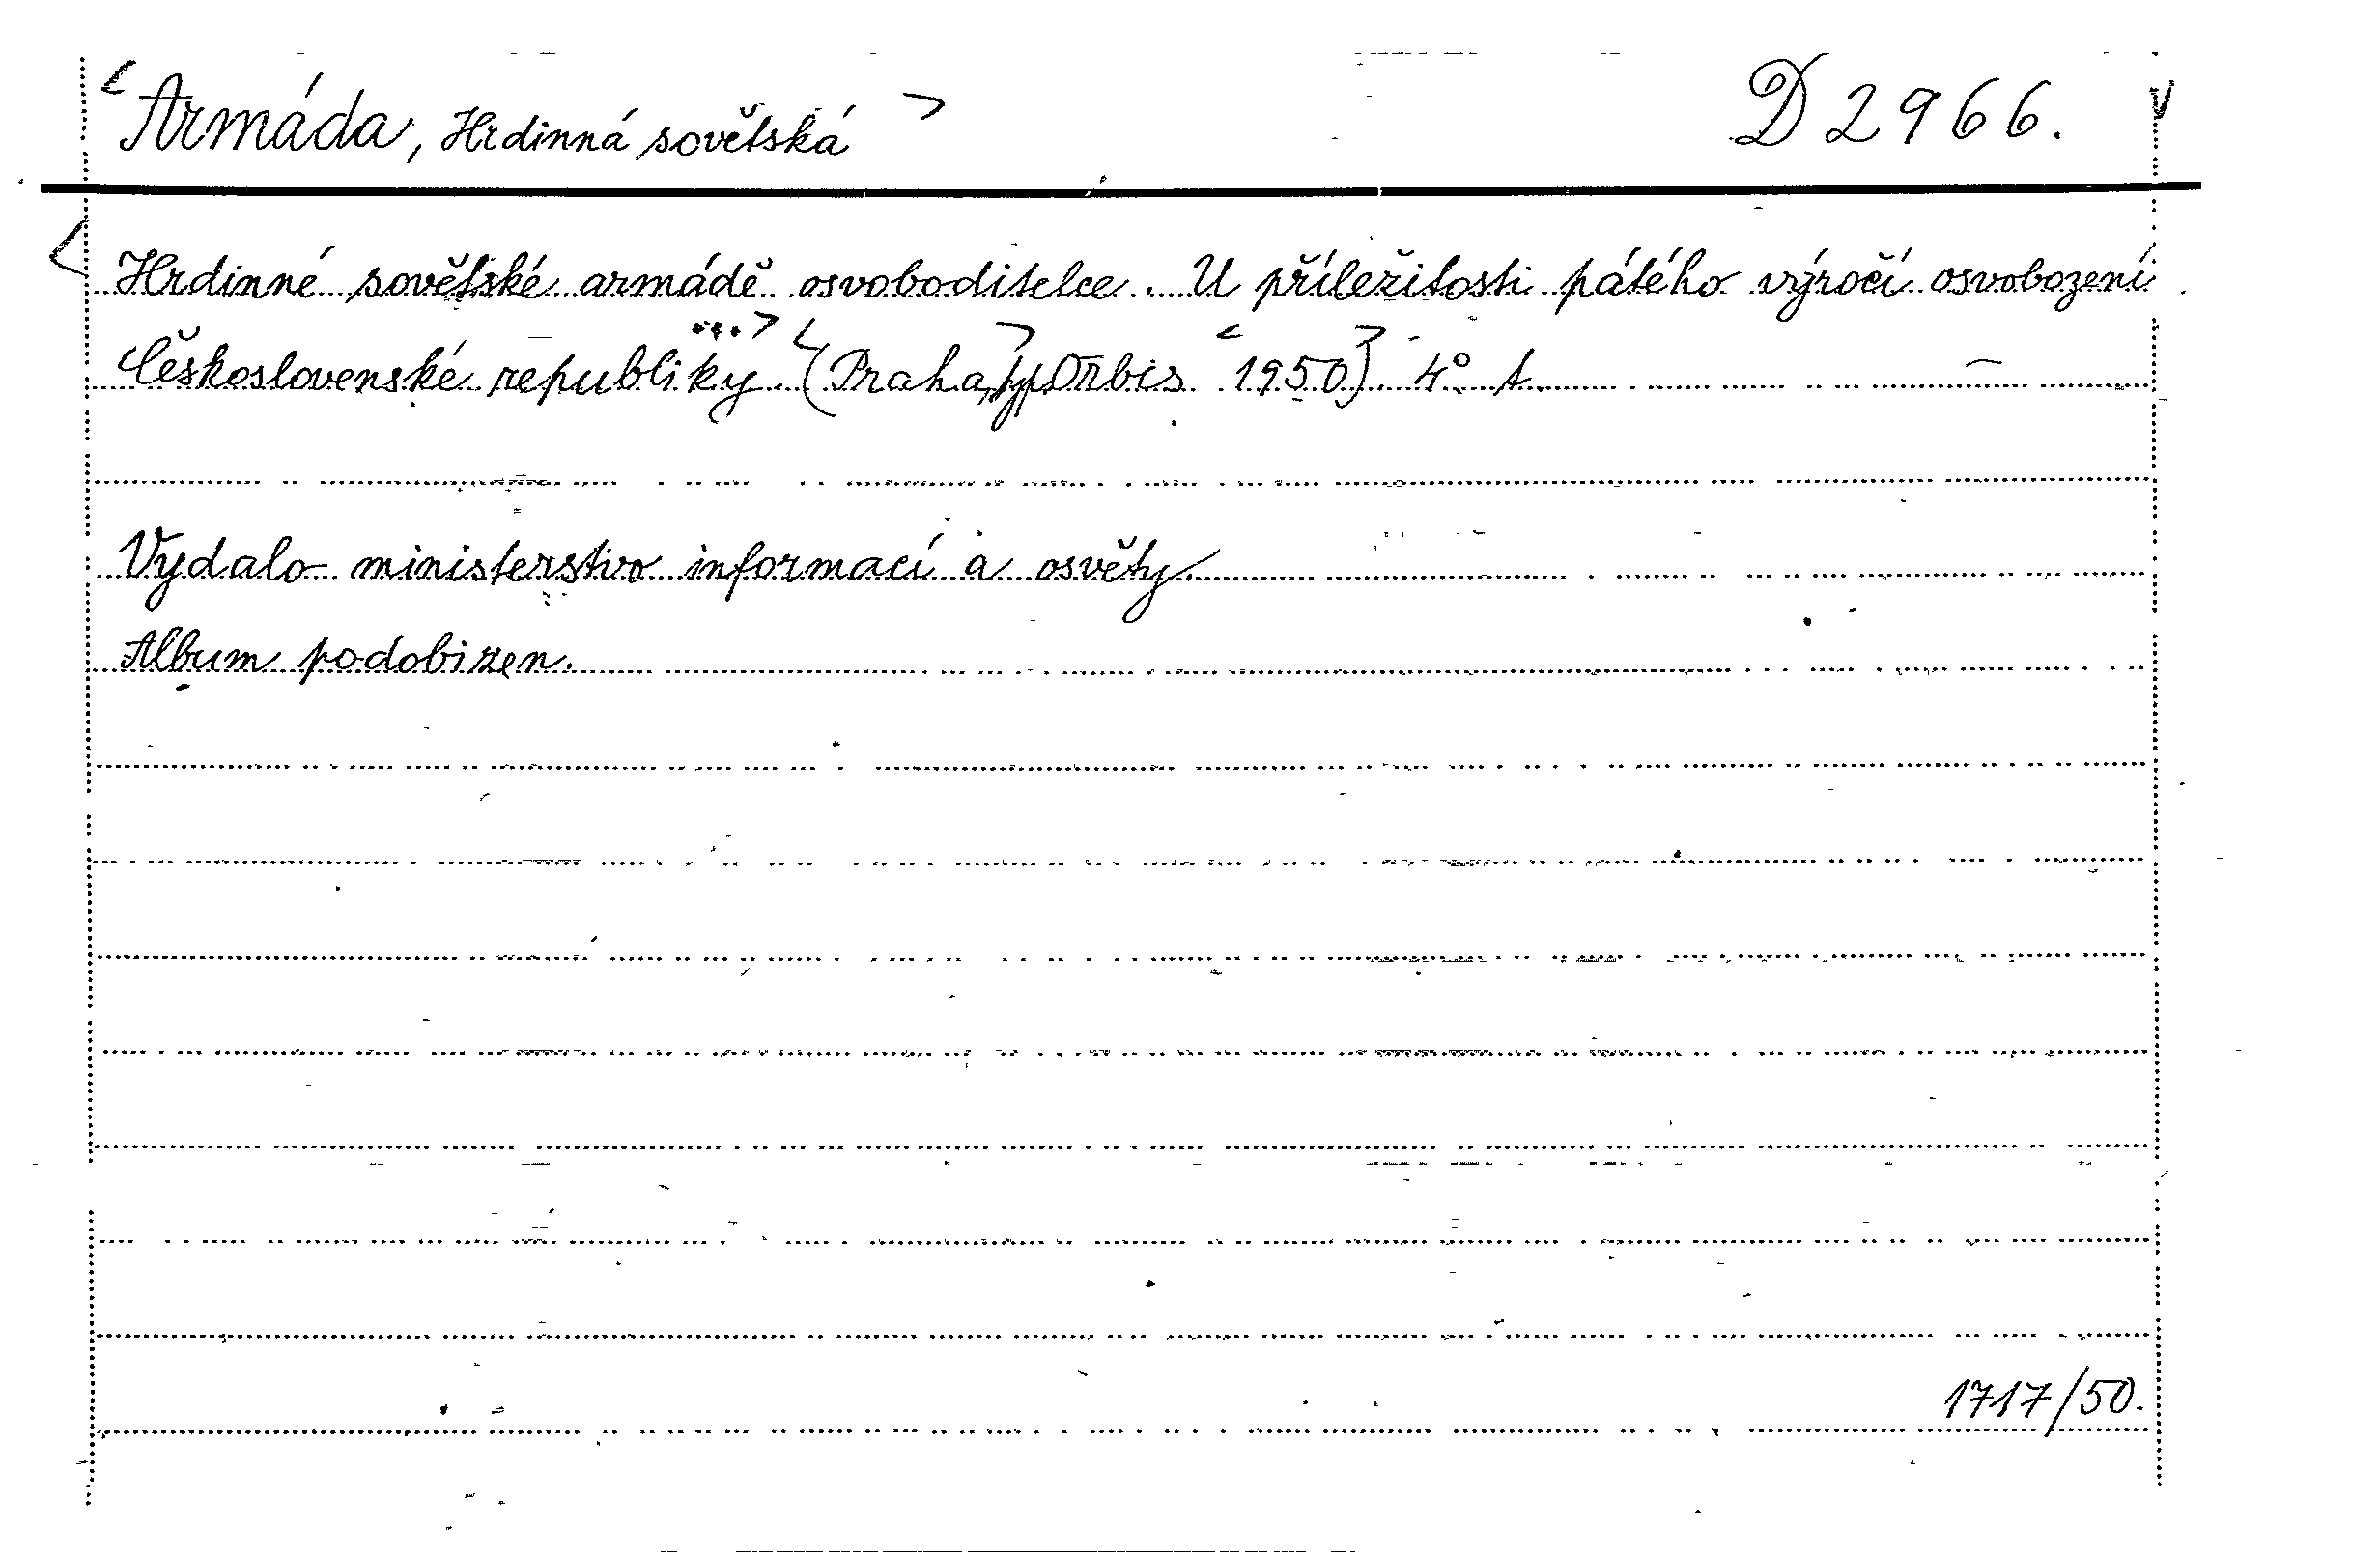 < Armáda, Hrdinná sovětská > D 2966.
< Hrdinné sovětské armádě osvoboditelce. U příležitosti pátého výročí osvobození
Československé republiky ...> <(Praha,> typ. Orbis <1950)> 4° A
Vydalo ministerstvo informací a osvěty.
Album podobizen.
1717/50.